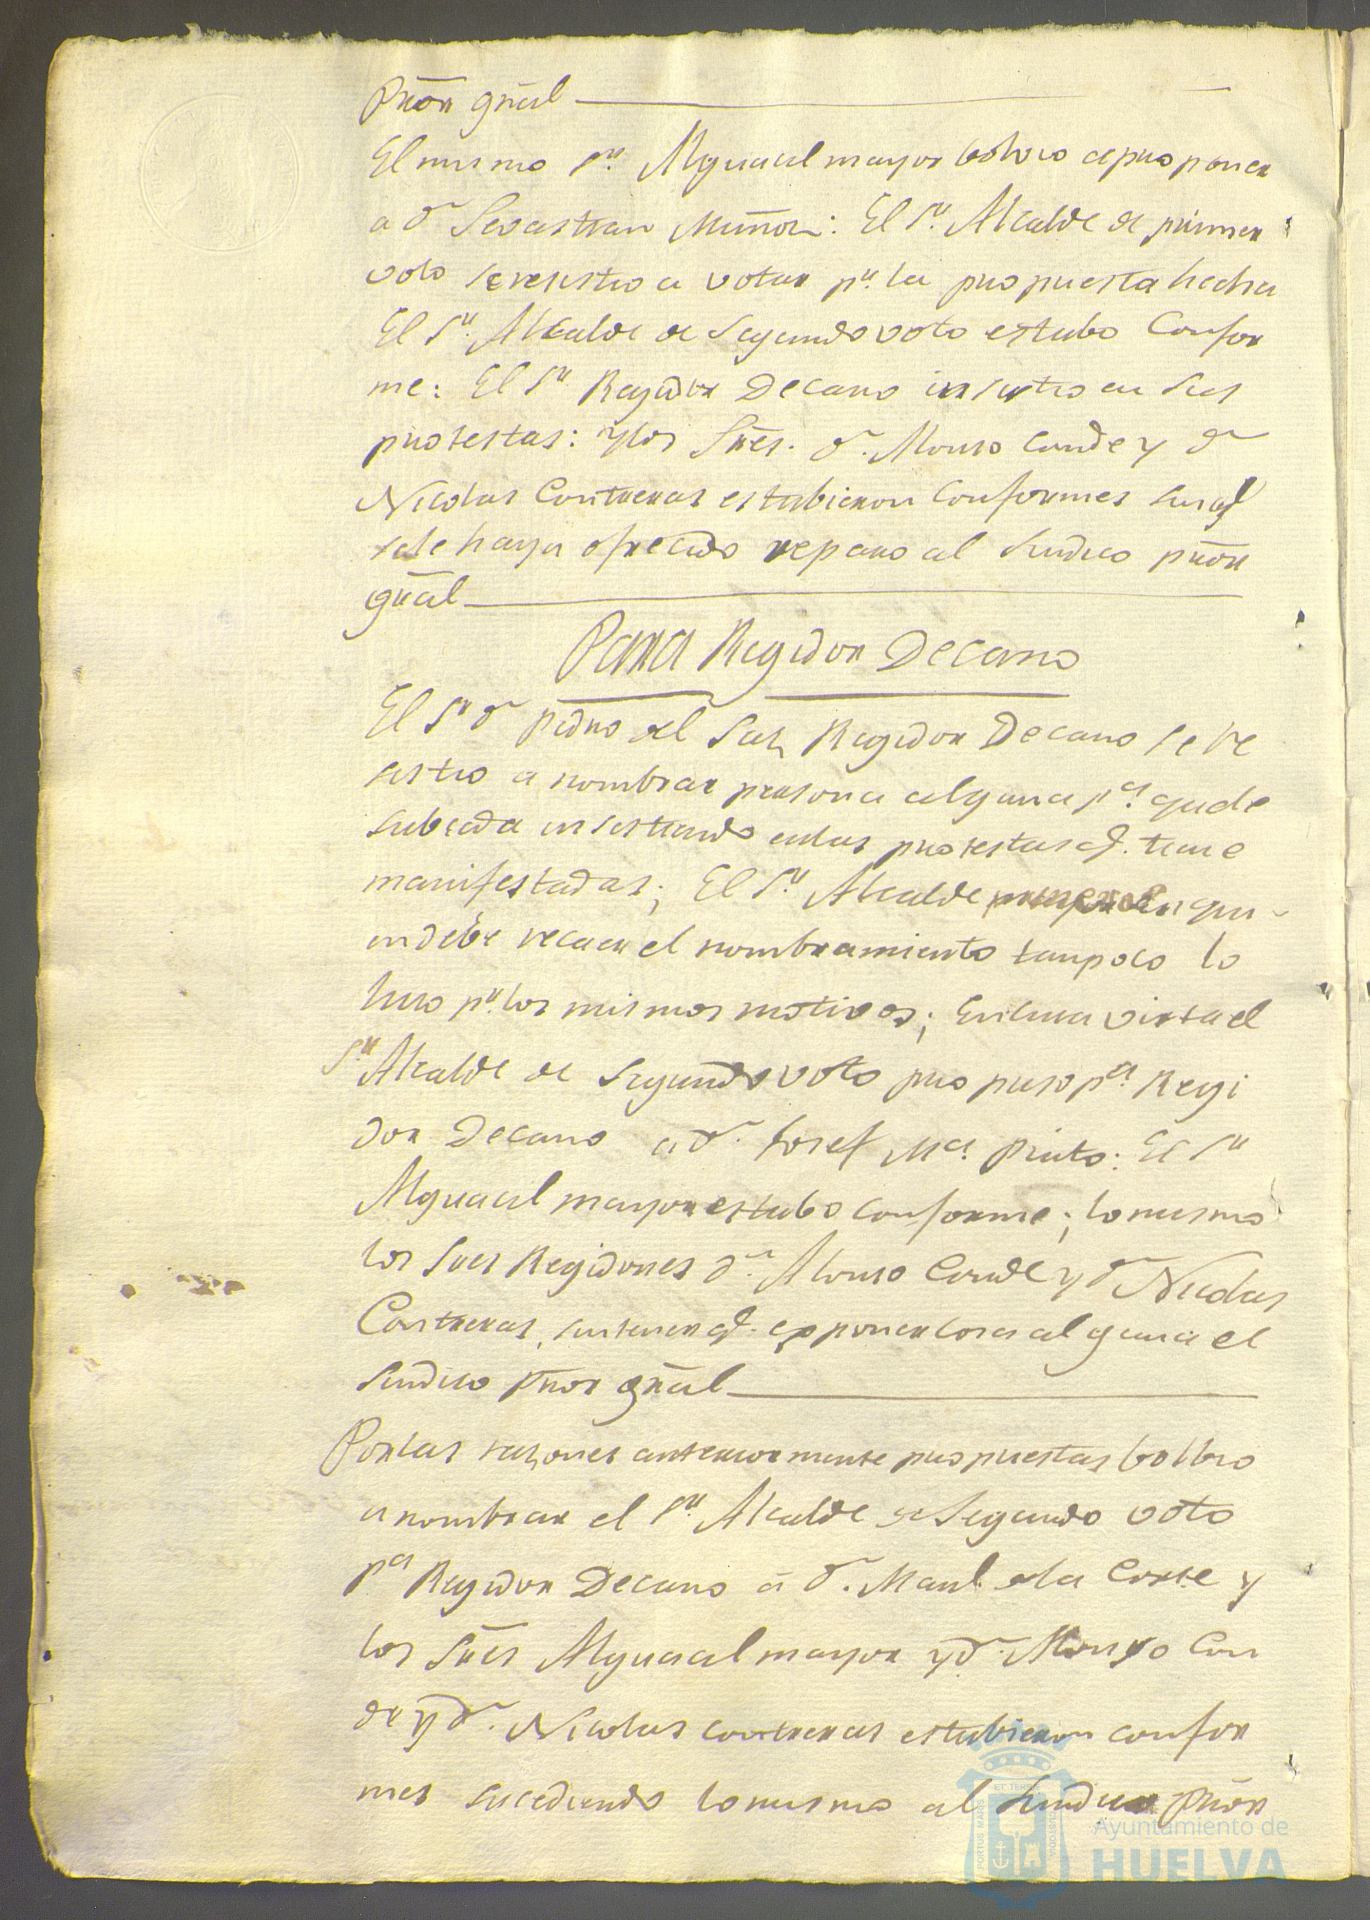 Pror gral
El mismo Sr. Alguacil mayor bolvio a proponer
a Dn Sevastian Muñoz: El Sr. Alcalde de primer
voto se resistio a votar pr. la propuesta hecha
El Sr. Alcalde de Segundo voto estubo Confor
me: El Sr Regidor Decano insistio en sus
protestas: y los Sres. Dn. Alonso Conde y Dn
Nicolas Contreras estubieron Conformes sin q
se le haya ofrecido reparo al Sindico pror
gral
Para Regidor Decano
El Sr Dn Pedro del Saz Regidor Decano se re
sistio a nombrar persona alguna pa. que le
subceda insistiendo en las protestas q. tiene
manifestadas; El Sr. Alcalde en qui
in debe recaer el nombramiento tampoco lo
hiso pr. los mismos motivos; En cuia virtu el
Sr Alcalde de Segundo voto propuso pa. Regi
dor Decano a Dn. Josef Ma. Pinto: El Sr
Alguacil mayor estubo conforme; lo mismo
los Sres Regidores Dn. Alonso Conde y Dn Nicolas
Contreras, sin tener q. exponer cosa alguna el
Sindico Pror gral
Por las razones anteriormente propuestas bolbio
a nombrar el Sr. Alcalde de Segundo voto
pa Regidor Decano a Dn. Manl. de la Corte y
los Sres Alguacil mayor y Dn. Alonso Con
de y Dn. Nicolas Contreras estubieron confor
mes sucediendo lo mismo al Sindico Pror
PORTUS MARIS ET TERRE CUSTODIA
Ayuntamiento de
HUELVA